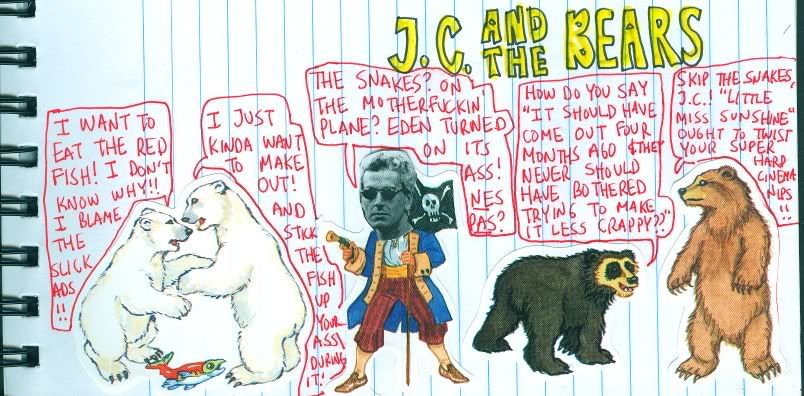 J.C. AND THE BEARS
I WANT TO
EAT THE RED
FISH! I DON'T
KNOW WHY!!
I BLAME
THE
SLICK
ADS
!!
I JUST
KINDA WANT
TO MAKE
OUT!
AND
STICK
THE
FISH
UP
YOUR
ASS
DURING
IT!
THE SNAKES? ON
THE MOTHERFUCKIN'
PLANE? EDEN TURNED
ON ITS
ASS!
NES
PAS?
HOW DO YOU SAY
"IT SHOULD HAVE
COME OUT FOUR
MONTHS AGO & THEY
NEVER SHOULD
HAVE BOTHERED
TRYING TO MAKE
IT LESS CRAPPY?"
SKIP THE SNAKES,
J.C.! "LITTLE
MISS SUNSHINE"
OUGHT TO TWIST
YOUR SUPER
HARD
CINEMA
NIPS
!!